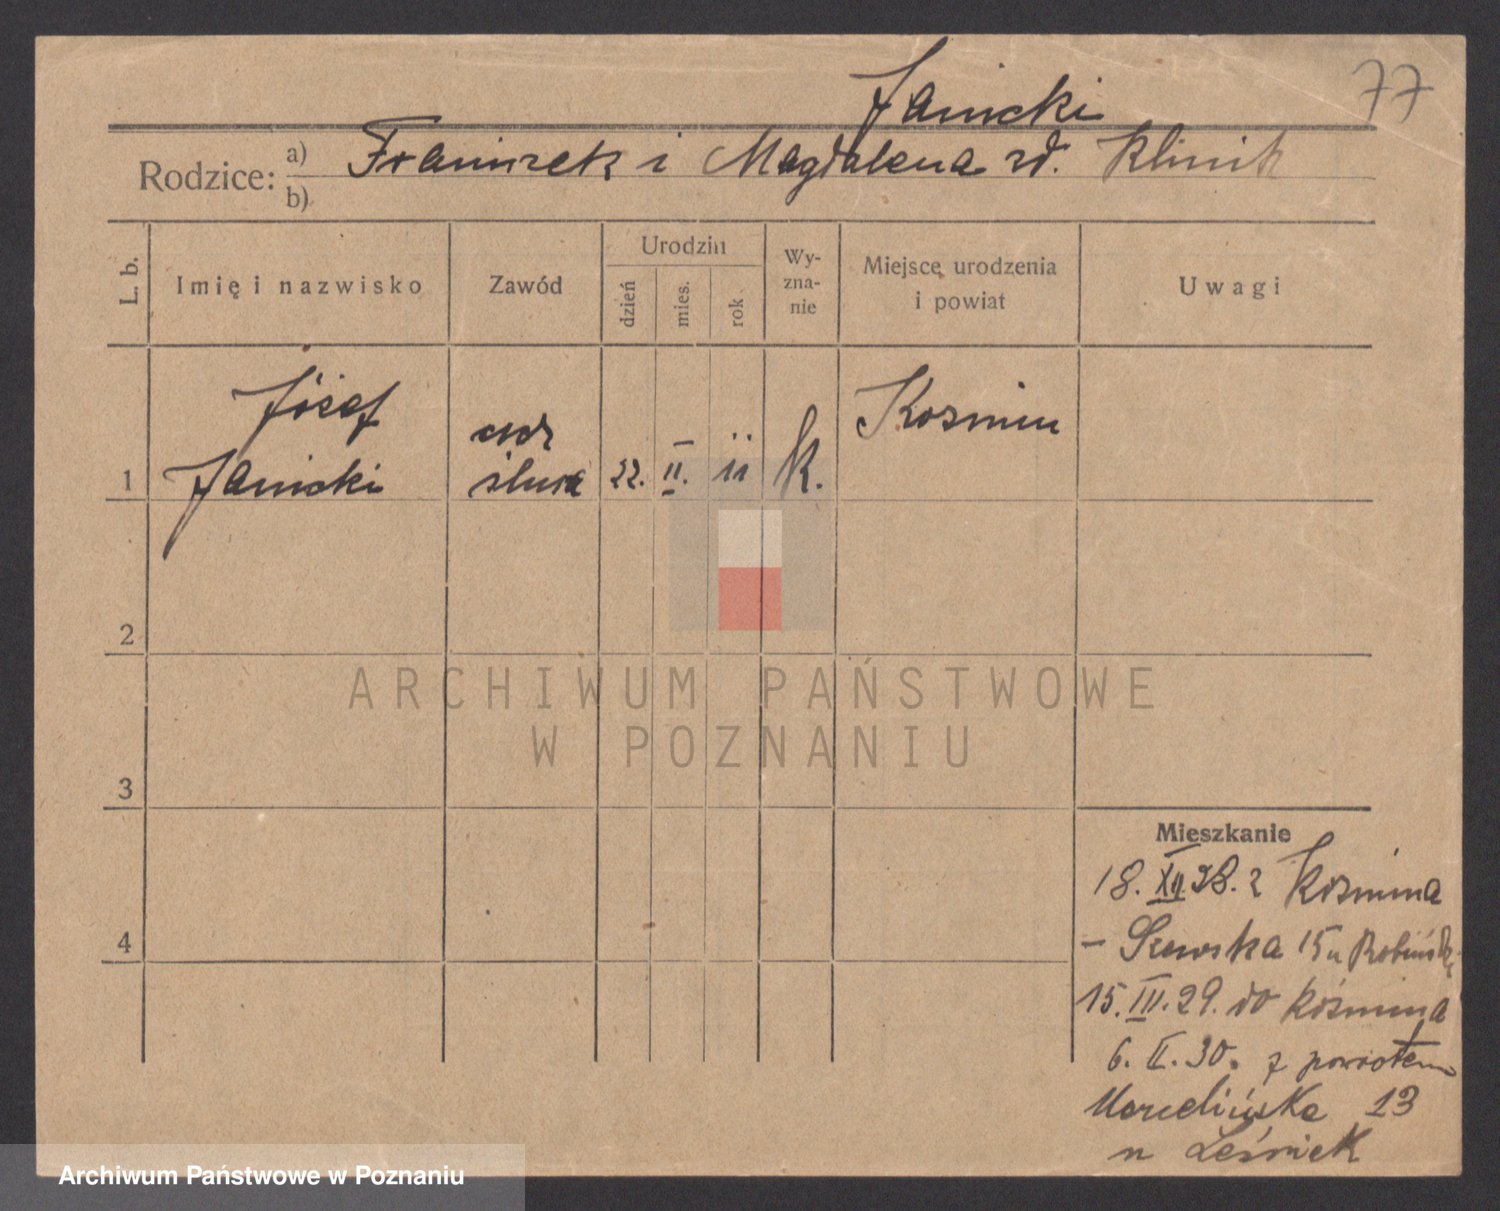 77
Janicki
Rodzice: a) Franiszek i Magdalena rd. Klinik
b)
L. b.
Imię i nazwisko
Zawód
Urodzin
dzień
mies.
rok
Wy-
zna-
nie
Miejsce urodzenia
i powiat
Uwagi
Józef
Janicki
czel.
22. II. 11
k.
Kozmin
1
2
3
4
ARCHIWUM PAŃSTWOWE
W POZNANIU
Mieszkanie
18. XII 28. z Koźmina
- Szewska 15 u
15. III. 29. do Koźmina
6. II. 30. z powrotem
Marcelińska 13
u Leśniek
Archiwum Państwowe w Poznaniu